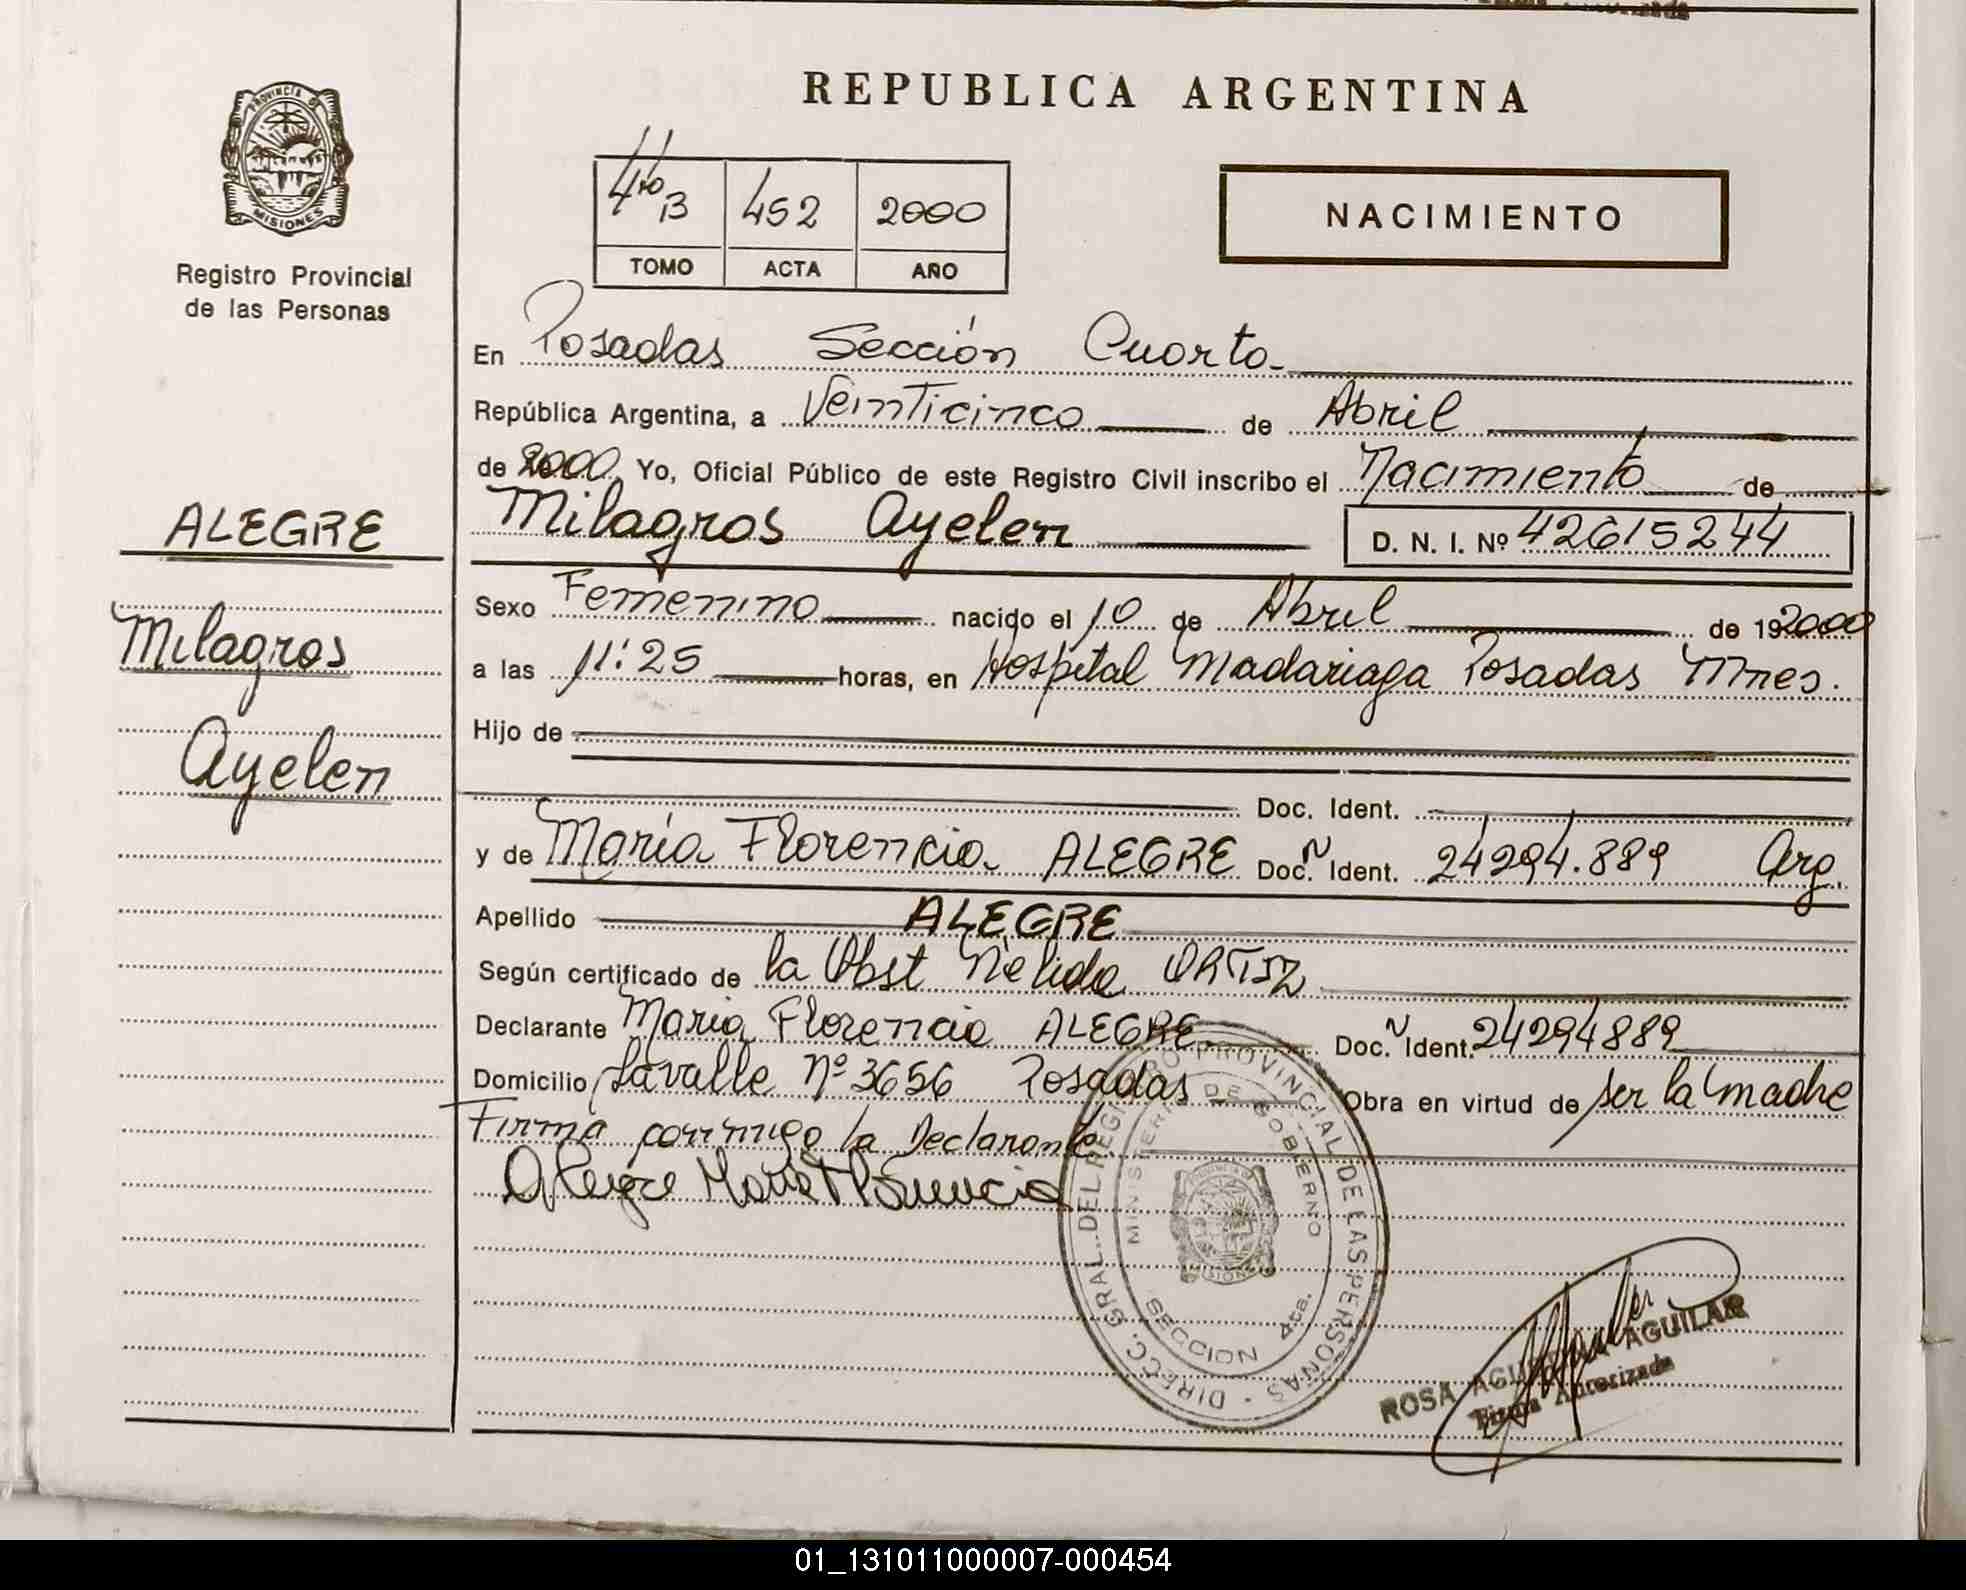 REPUBLICA ARGENTINA
PROVINCIA DE
MISIONES
Registro Provincial
de las Personas
4to B 452 2000
TOMO ACTA AÑO
NACIMIENTO
En Posadas Sección Cuarta
República Argentina, a Veinticinco de Abril
de 2000 Yo, Oficial Público de este Registro Civil inscribo el Nacimiento de
Milagros Ayelen D. N. I. Nº 42615244
ALEGRE
Milagros
Ayelen
Sexo Femenino nacido el 10 de Abril de 192000
a las 11:25 horas, en Hospital Madariaga Posadas Mnes.
Hijo de
Doc. Ident.
y de María Florencia ALEGRE Doc. N Ident. 24294.889 Arg.
Apellido ALEGRE
Según certificado de la Obst Nélida ORTIZ
Declarante María Florencia ALEGRE Doc. N Ident. 24294889
Domicilio Lavalle Nº 3656 Posadas Obra en virtud de ser la madre
Firma conmigo la Declarante.
Alegre Maria Florencia
DIRECC. GRAL. DEL REGISTRO PROVINCIAL DE LAS PERSONAS
MINISTERIO DE GOBIERNO
SECCION 4ta.
MISIONES
ROSA AGUILAR
Firma Autorizada
01_131011000007-000454